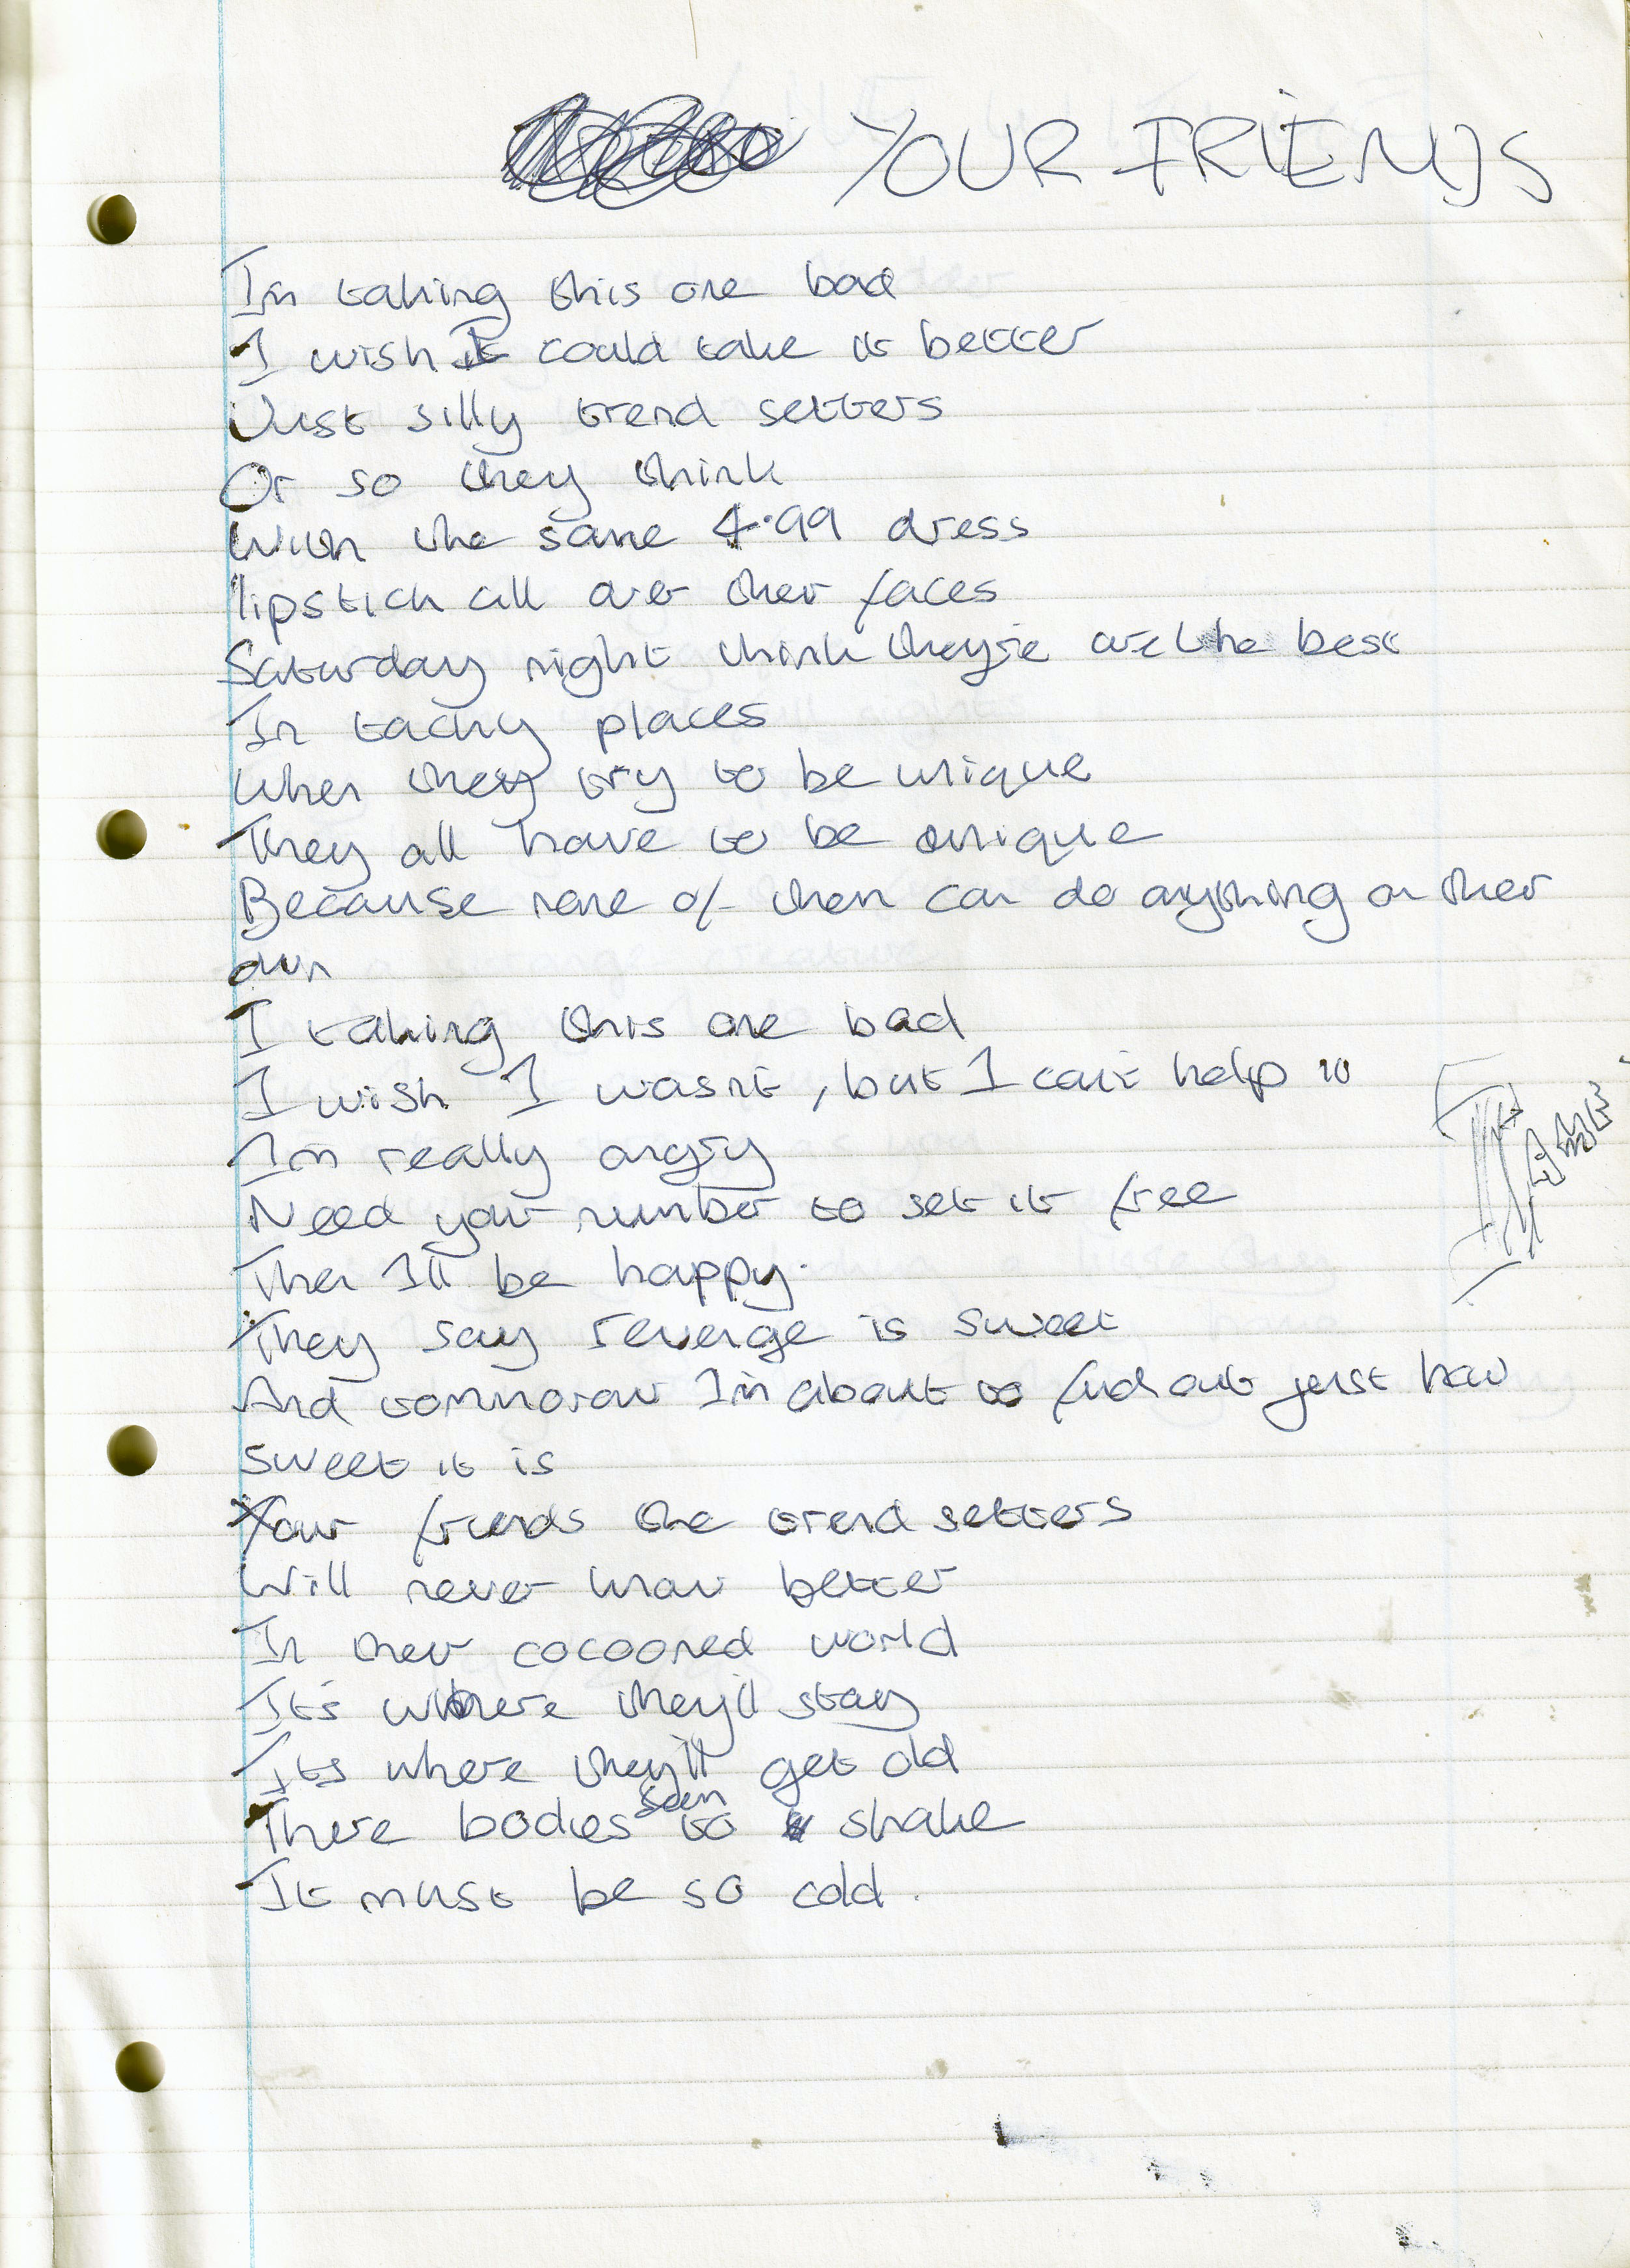 YOUR FRIENDS
Im taking this one bad
I wish I could take it better
Just silly trend setters
Or so they think
With the same 4.99 dress
lipstick all over ther faces
Saturday night think they're are the best
In tacky places
When they try to be unique
They all have to be unique
Because none of them can do anything on ther
own
I taking this one bad
I wish I wasnt, but I can't help it
Im really angry
Need your number to set it free
Then I'll be happy.
They say revenge is sweet
And tommorow I'm about to find out just how
sweet it is
Your friends the trend setters
Will never know better
In ther cocooned world
It's where they'll stay
Its where they'll get old
There bodies seen to shake
It must be so cold.